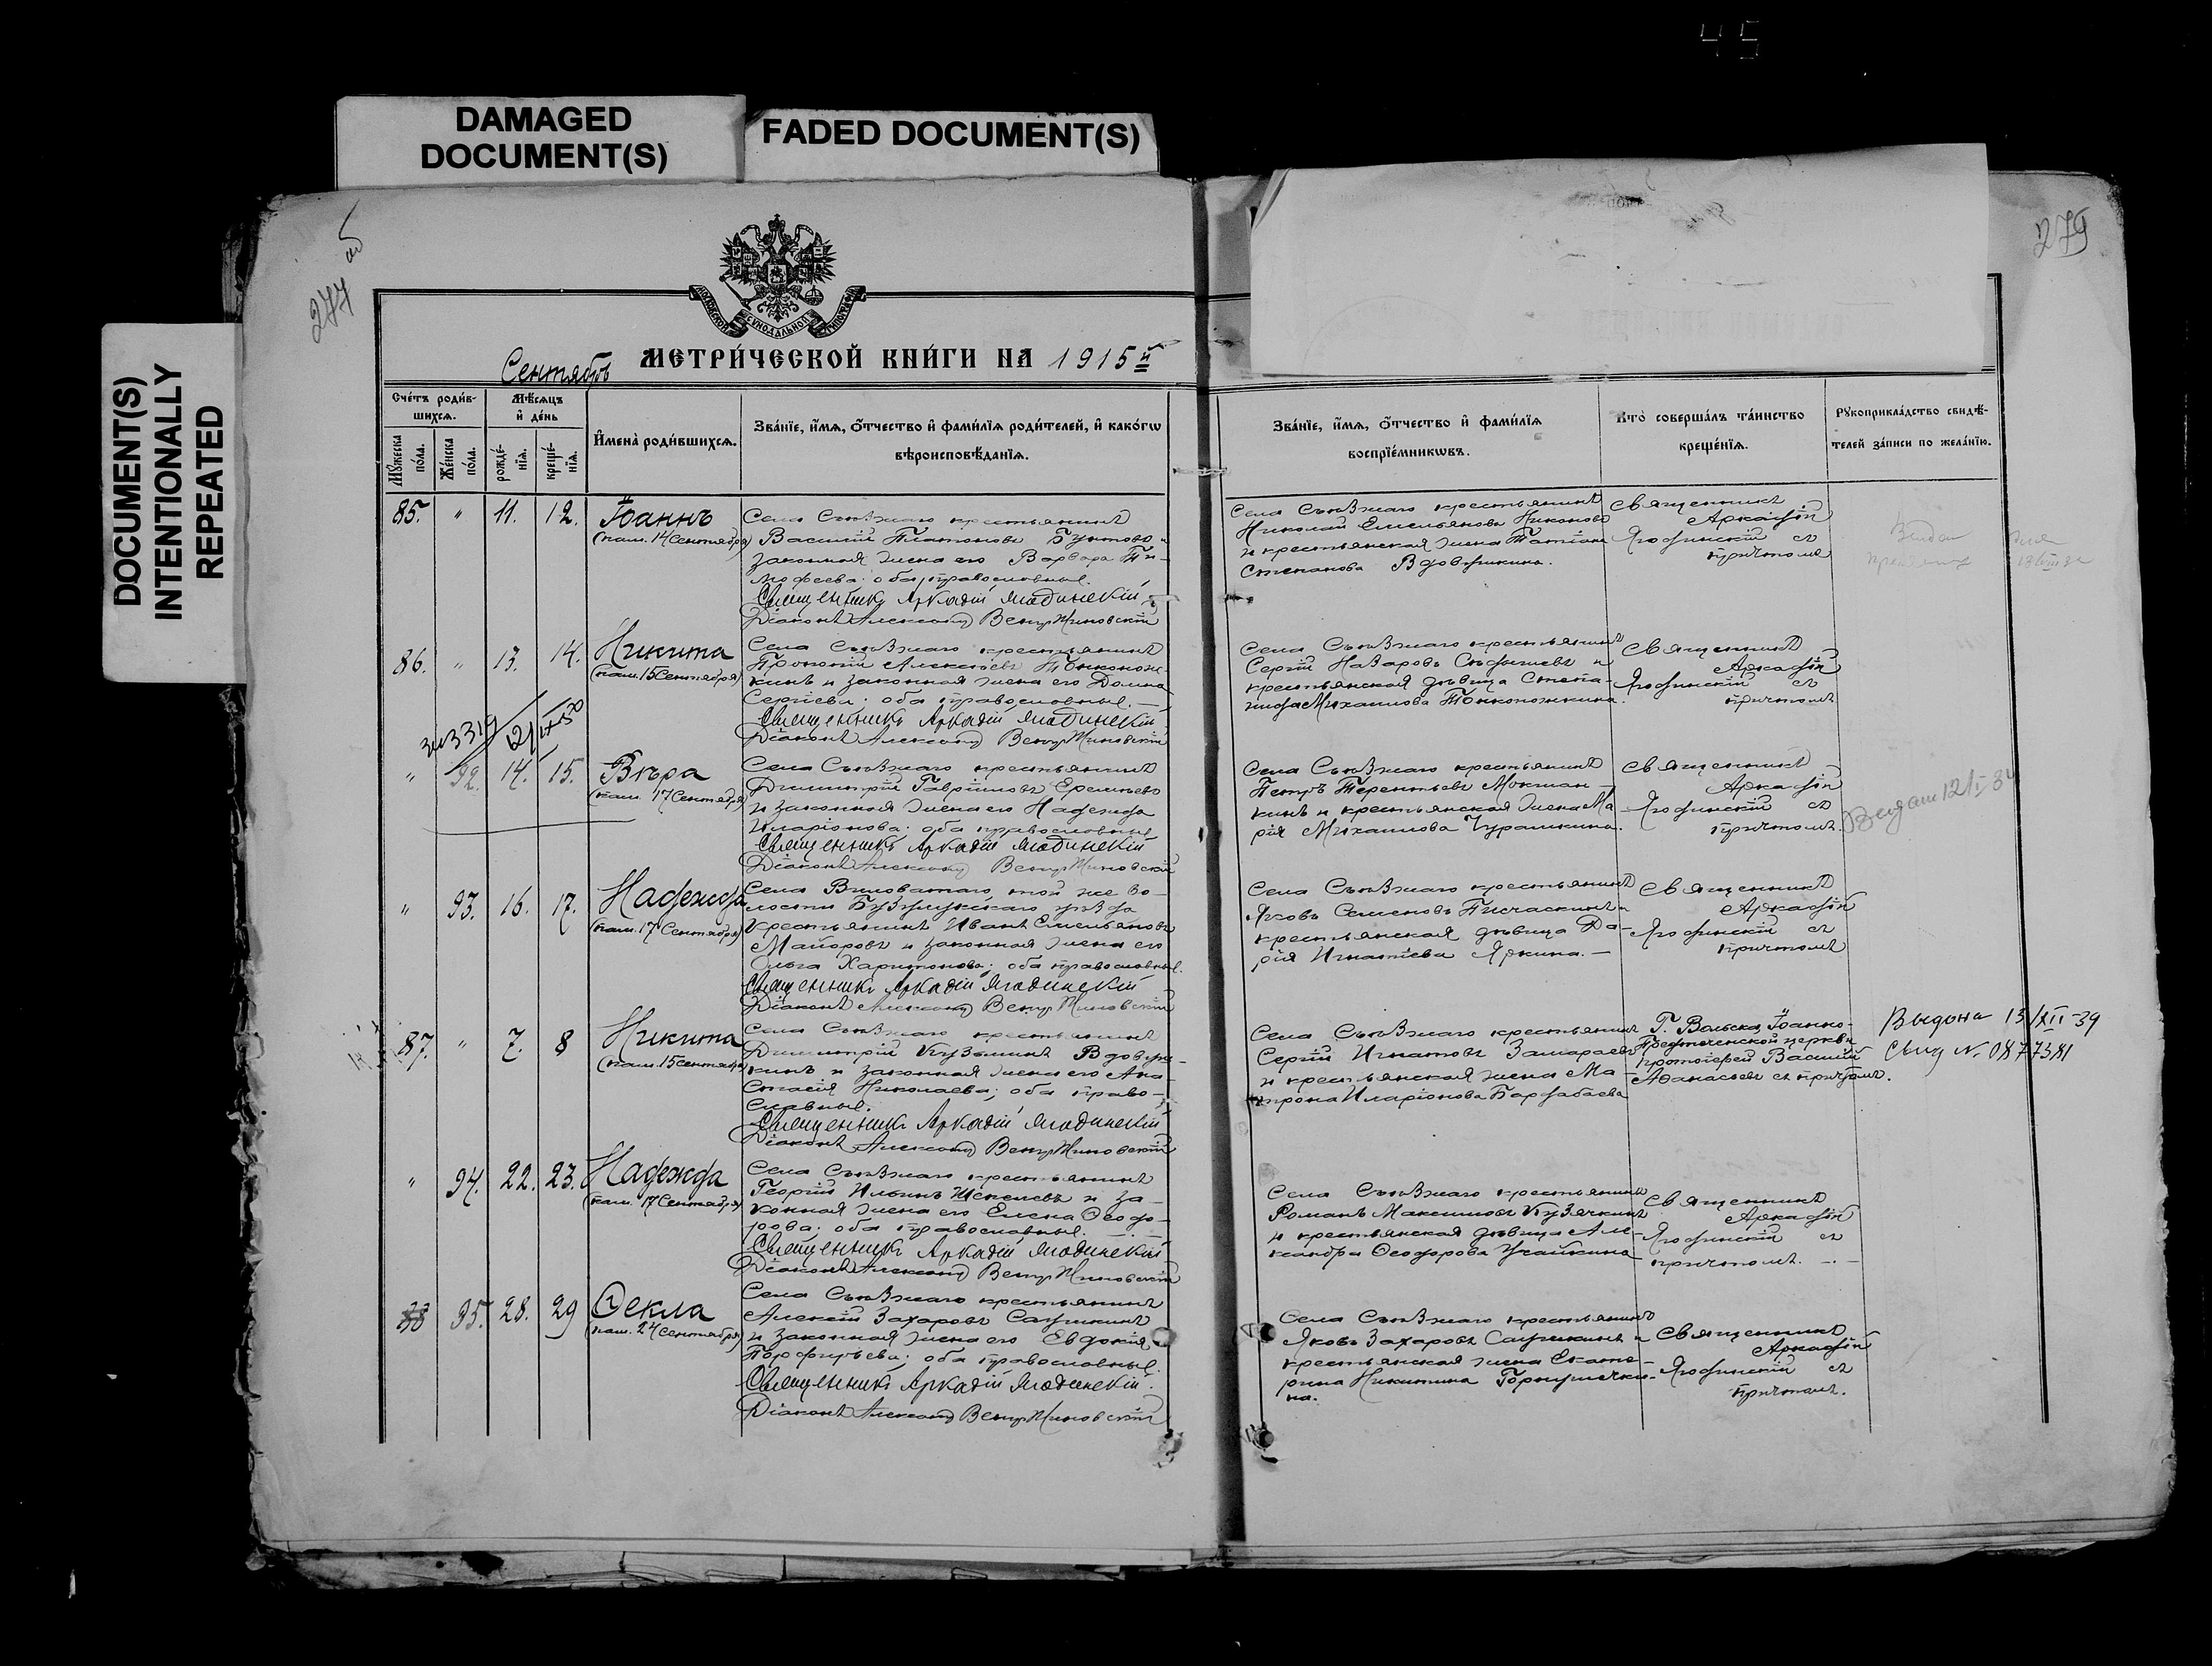 45
DAMAGED
DOCUMENT(S)
FADED DOCUMENT(S)
DOCUMENT(S)
INTENTIONALLY
REPEATED
277 об
279
МОСКОВСКОЙ СѴНОДАЛЬНОЙ ТИПОГРАФІИ
Сентябрь МЕТРИ́ЧЕСКОЙ КНИ́ГИ НА 1915й
Сче́тъ роди́в-
шихсѧ.
Мѣ́сѧцъ
и҆ де́нь
Мꙋ́жеска
по́ла.
Же́нска
по́ла.
рожде́-
нїѧ.
креще́-
нїѧ.
И҆мена̀ роди́вшихсѧ.
Зва́нїе, и҆́мѧ, ѻ҆́тчество и҆ фами́лїѧ роди́телей, и҆ како́гѡ
вѣроисповѣ́данїѧ.
Зва́нїе, и҆́мѧ, ѻ҆́тчество и҆ фами́лїѧ
воспрїе́мникѡвъ.
Кто̀ соверша́лъ та́инство
креще́нїѧ.
Рꙋкоприкла́дство свидѣ́-
телей за́писи по жела́нїю.
85. " 11. 12. Іоаннъ
(пам. 14 Сентября)
Села Съѣзжаго крестьянинъ
Василій Платоновъ Бунтовъ и
законная жена его Варвара Ти-
мофеева; оба православные.
Священникъ Аркадій Ягодинскій
Діаконъ Александр
Села Съѣзжаго крестьянинъ
Николай Емельяновъ Никоновъ
и крестьянская жена Татіана
Степанова Вдовушкина.
Священникъ
Аркадій
Ягодинскій съ
причтомъ
86. " 13. 14. Никита
(пам. 15 Сентября)
Села Съѣзжаго крестьянинъ
Прокопій Алексѣевъ Тонконож-
кинъ и законная жена его Домна
Сергіева; оба православные.
Священникъ Аркадій Ягодинскій
Діаконъ Александр
Села Съѣзжаго крестьянинъ
Сергій Назаровъ и
крестьянская дѣвица Степа-
нида Михаилова Тонконожкина.
Священникъ
Аркадій
Ягодинскій съ
причтомъ
" 92. 14. 15. Вѣра
(пам. 17 Сентября)
Села Съѣзжаго крестьянинъ
Димитрій Гавріиловъ
и законная жена его Надежда
Иларіонова; оба православные
Священникъ Аркадій Ягодинскій
Діаконъ Александр
Села Съѣзжаго крестьянинъ
Петръ Терентьевъ Мокшан-
кинъ и крестьянская жена Ма
рія Михаилова Чурашкина.
Священникъ
Аркадій
Ягодинскій съ
причтомъ.
" 93. 16. 17. Надежда
(пам. 17 Сентября)
Села Виловатаго, той же во-
лости Бузулукскаго уѣзда
крестьянинъ Иванъ Емельяновъ
Майоровъ и законная жена его
Ольга Харитонова; оба православные.
Священникъ Аркадій Ягодинскій
Діаконъ Александр
Села Съѣзжаго крестьянинъ
Яковъ Семеновъ Писчаскинъ и
крестьянская дѣвица Да-
рія Игнатіева Яркина.
Священникъ
Аркадій
Ягодинскій съ
причтомъ
87. " 7. 8 Никита
(пам. 15 Сентября)
Села Съѣзжаго крестьянинъ
Димитрій Кузьминъ Вдовуш-
кинъ и законная жена его Ана-
стасія Николаева; оба право-
славные.
Священникъ Аркадій Ягодинскій
Діаконъ Александр
Села Съѣзжаго крестьянинъ
Сергій Игнатовъ Замараевъ
и крестьянская жена Ма-
трона Иларіонова Барабаева
Г. Вольска, Іоанно-
Предтеченской церкви
протоіерей Василій
Аѳанасьевъ съ причтомъ.
Выдано 13/XII-39
Свид №
" 94. 22. 23. Надежда
(пам. 17 Сентября)
Села Съѣзжаго крестьянинъ
Георгій Ильинъ Шекелевъ и за-
конная жена его Елена Ѳеодо-
рова; оба православные.
Священникъ Аркадій Ягодинскій
Діаконъ Александр
Села Съѣзжаго крестьянинъ
Романъ Максимовъ Кузячкинъ
и крестьянская дѣвица Але-
ксандра Ѳеодорова Учайкина
Священникъ
Аркадій
Ягодинскій съ
причтомъ.
95. 28. 29 Ѳекла
(пам. 24 Сентября)
Села Съѣзжаго крестьянинъ
Алексій Захаровъ Салушкинъ
и законная жена его Евдокія
Порфирьева; оба православные.
Священникъ Аркадій Ягодинскій.
Діаконъ Александр
Села Съѣзжаго крестьянинъ
Яковъ Захаровъ Салушкинъ и
крестьянская жена Екате-
рина Никитина Горнушечки-
на.
Священникъ
Аркадій
Ягодинскій съ
причтомъ.